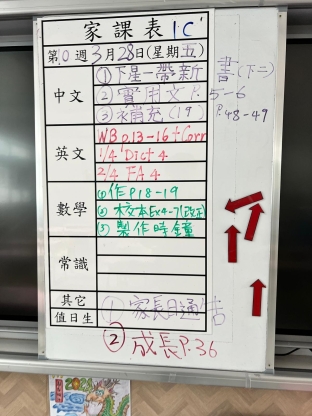 家課表 1C
第10週3月28日(星期五)
中文
①下星一帶新書(下二)
②實用文P.5-6
③衣補充(19) P.48-49
英文
WB p.13-16+Corr
1/4 Dict 4
2/4 FA 4
數學
①作P18-19
②校本Ex4-7(改正)
③製作時鐘
常識
其它
①家長日通告
值日生
②成長P.36